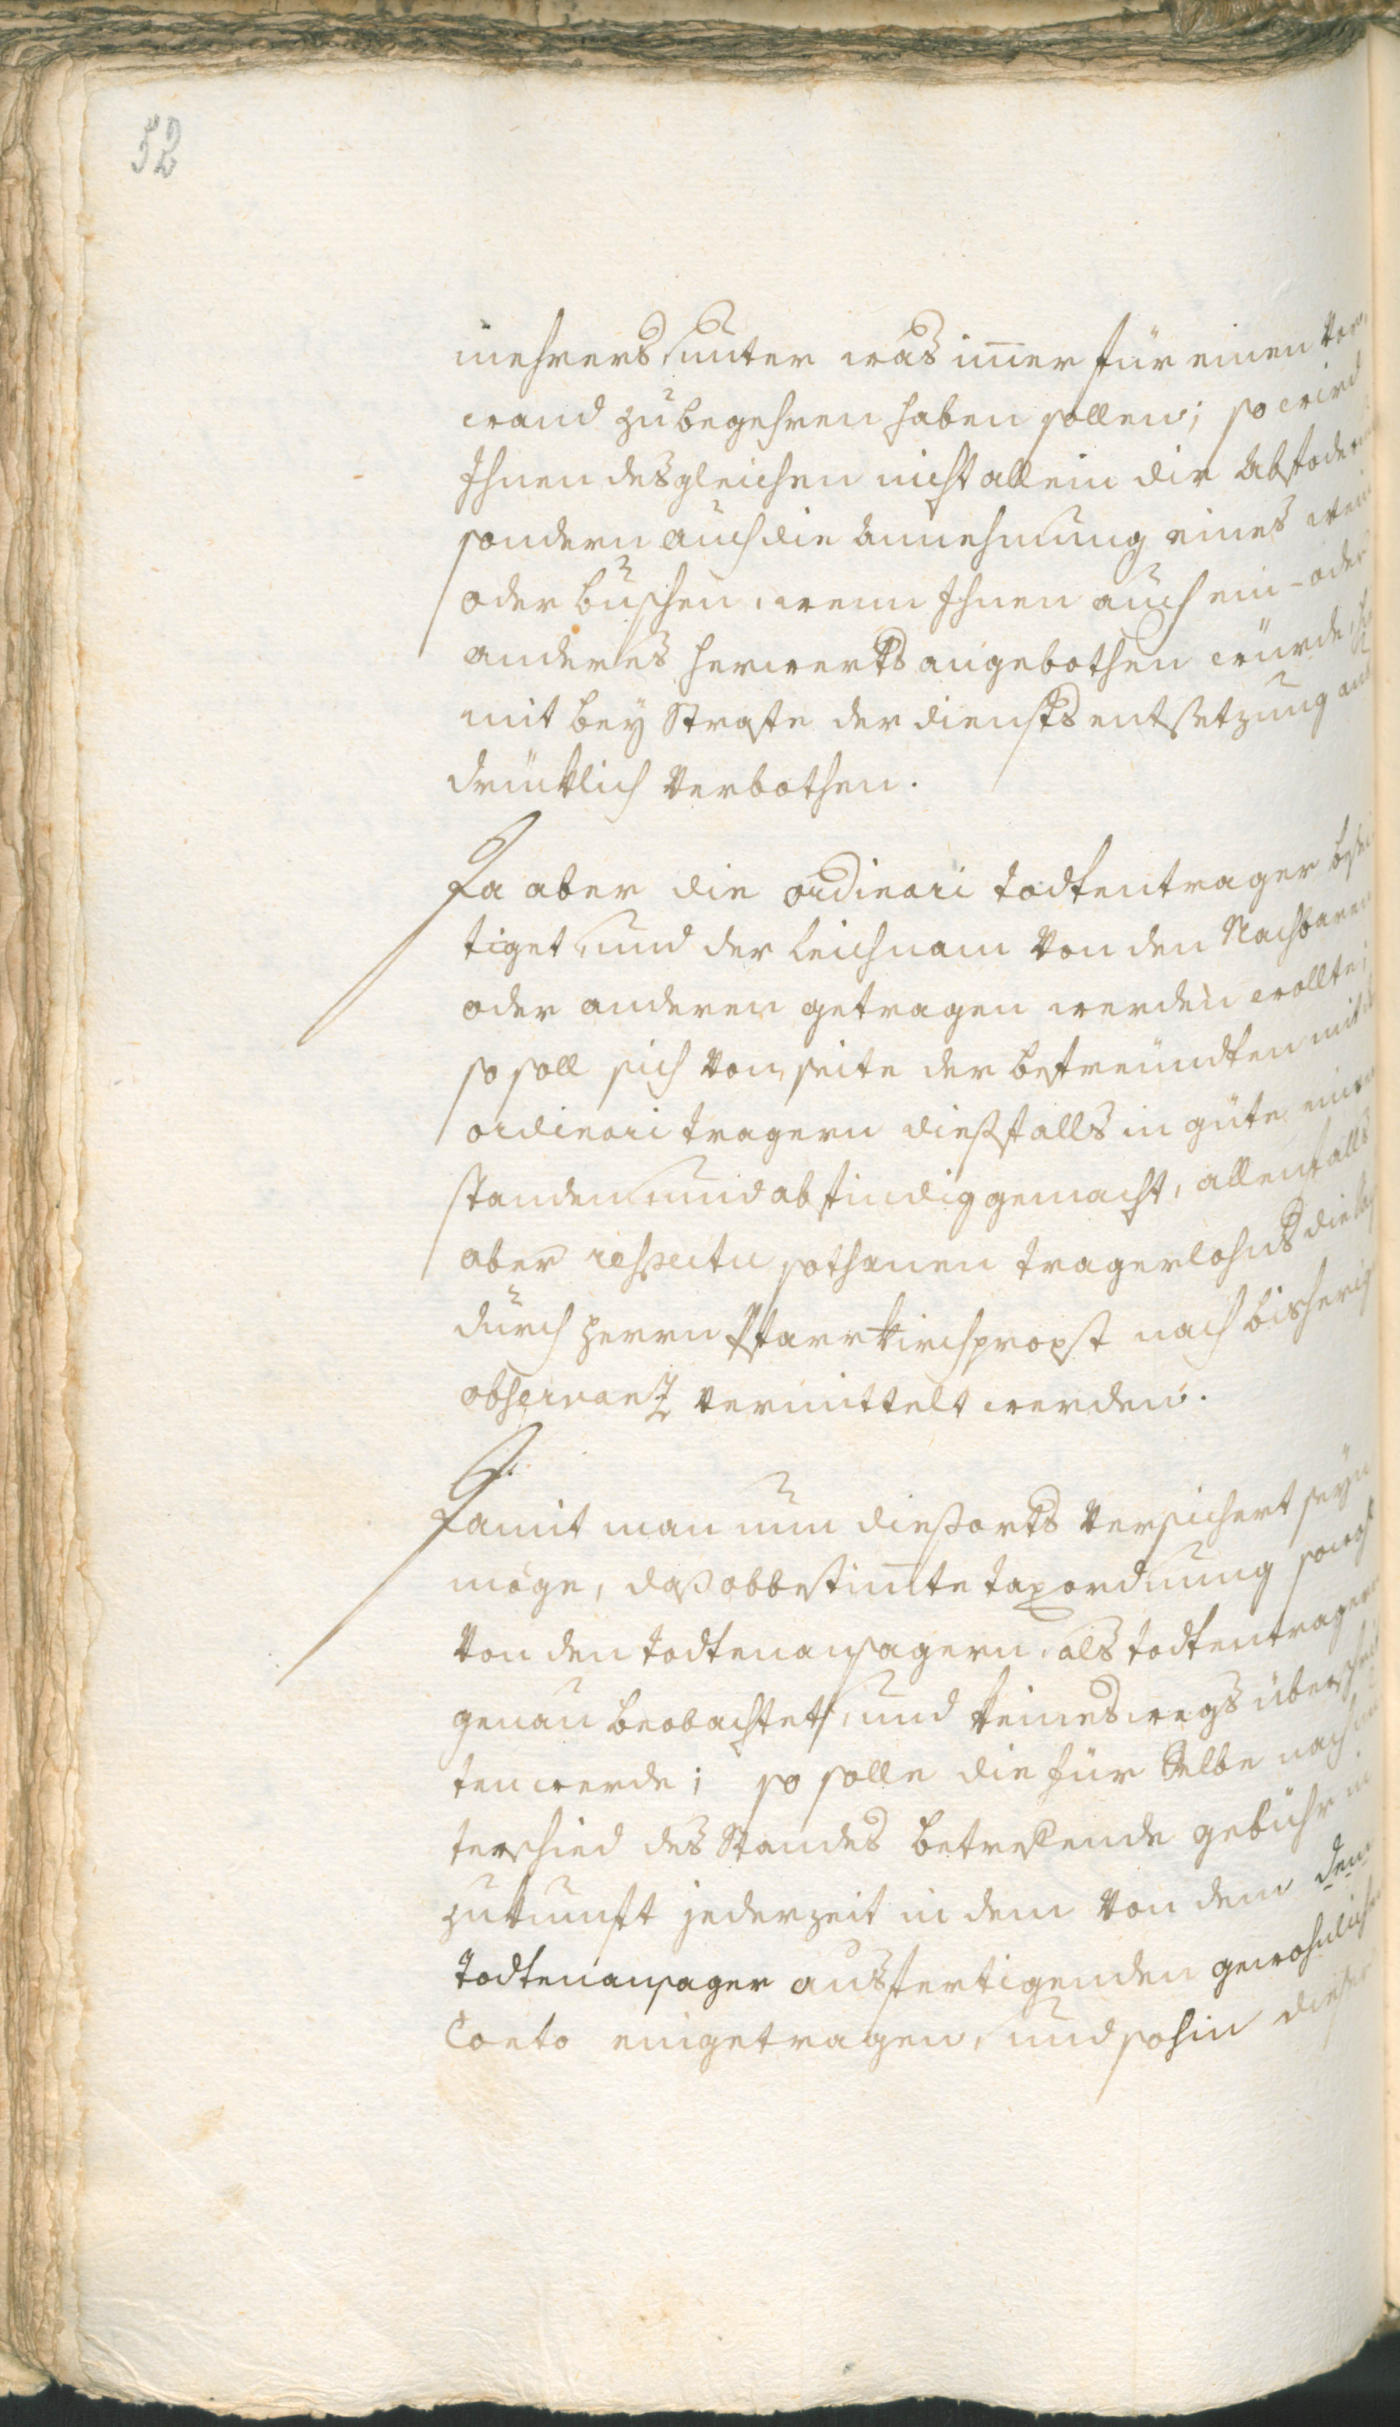 52
mehrers, unter was im̄er für einen Vor-
wand zu begehren haben sollen; so wird
Ihnen desgleichen nicht allein die Abfoder
sondern auch die Annehmung eines wein
oder buschen, wenn Ihnen auch ein- oder
anderes herwerts angebothen würde,
mit bey Strafe der diensts entsetzung aus
drüklich Verbothen.
Da aber die ordinari todtentrager
tiget, und der Leichnam Von den Nachbaren
oder anderen getragen werden wollte;
so soll sich Von seite der befreundten mit
ordinari tragern diesfalls in güte einver
standen und abfindig gemacht, allenfalls
aber respectu sothanen tragerlohns die
durch herrn Pfarrkirchpropst nach bisherig
observanz Vermittelt werden.
Damit man nun diesorts Versichert seyn
möge, daß obbestim̄te taxordnung sowohl
Von den todtenansagern, als todtentragern
genau beobachtet, und keineswegs überschrit
ten werde; so solle die für Selbe nach un
terschied des Standes betreffende gebühr in
zukunft jederzeit in dem Von dem dem
todtenansager ausfertigenden gewohnlichen
Conto eingetragen, und sohin dieser